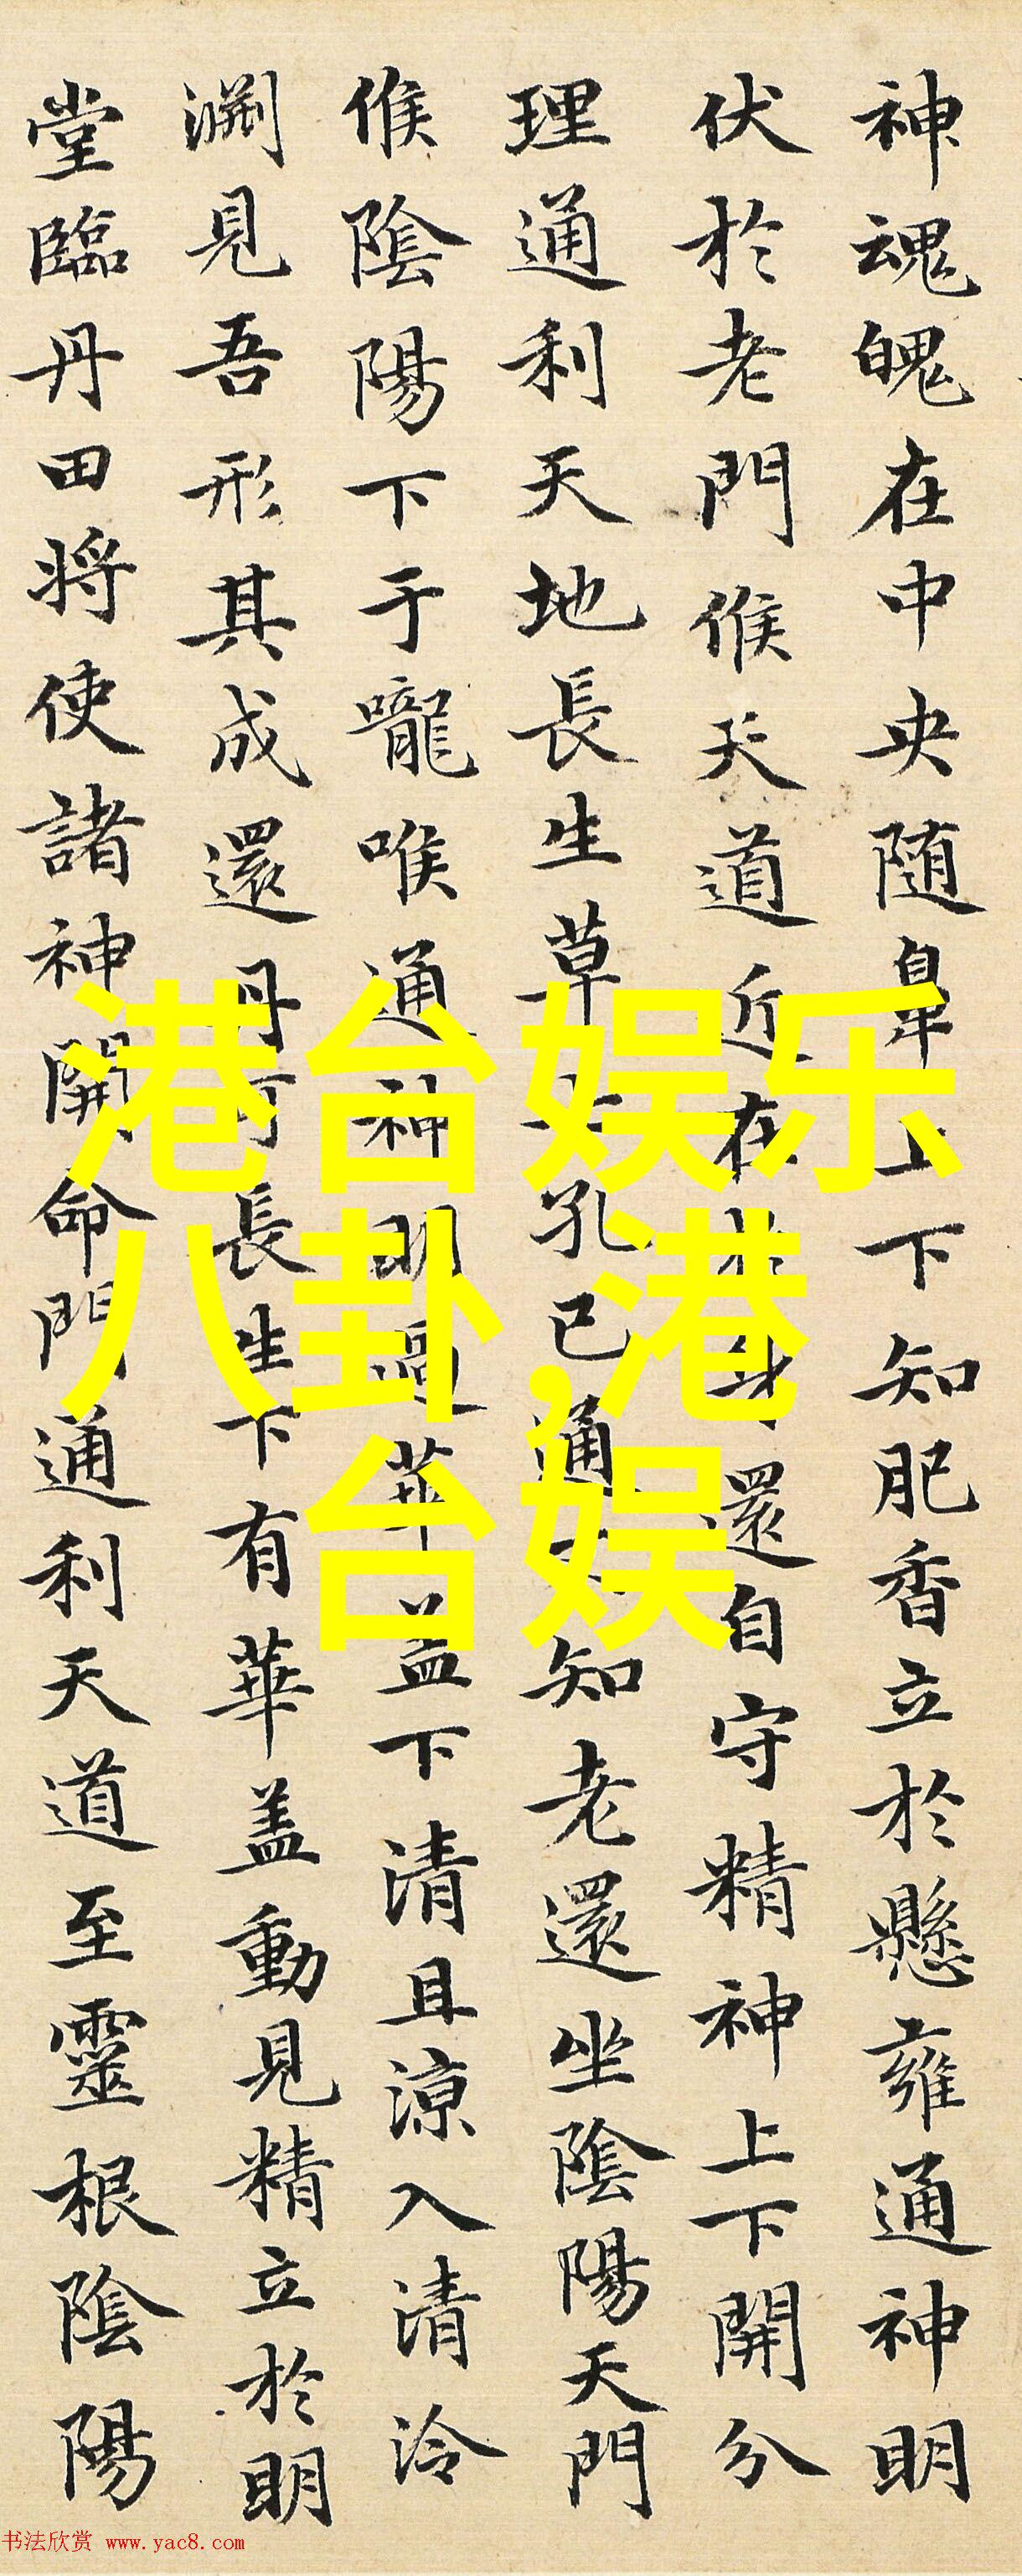 神魂魄在中央随鼻上下知肥香立於懸雍通神明
伏於老門候天道近在於身還自守精神上下開分
理通利天地長生草七孔已通不知老還坐陰陽天門
候陰陽下于嚨喉通神明過華盖下清且涼入清泠
淵見吾形其成還丹可長生下有華盖動見精立於明
堂臨丹田将使諸神開命門通利天道至靈根陰陽
港台娱乐
八卦,港
台娱
书法欣赏 www.yac8.com